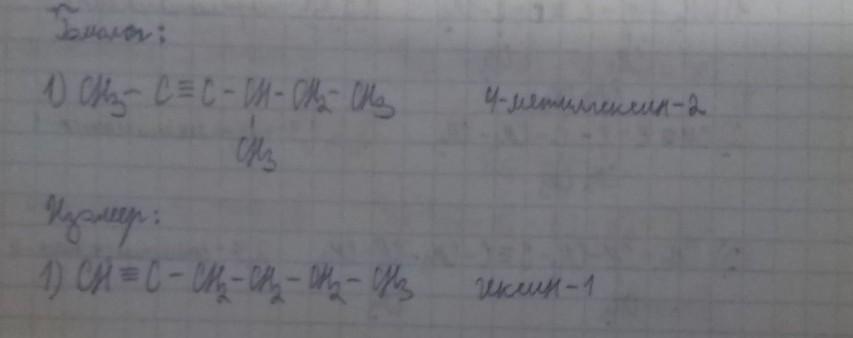 Гомолог:
1) CH3 - C ≡ C - CH - CH2 - CH3 4-метилгексин-2
CH3
Изомер:
1) CH ≡ C - CH2 - CH2 - CH2 - CH3 гексин-1